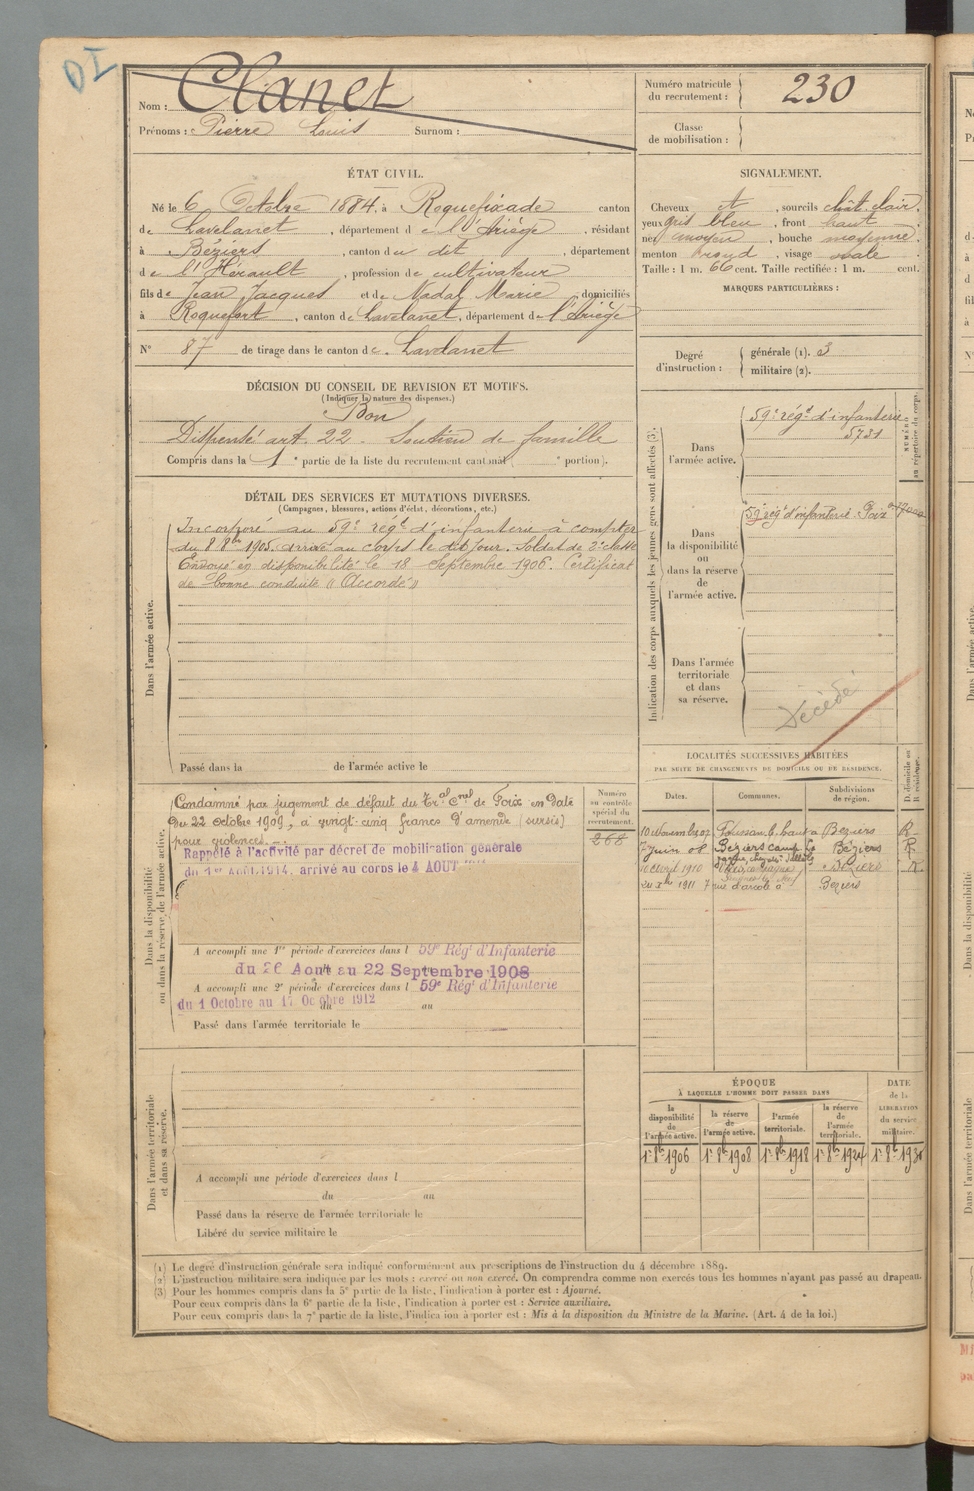 Nom : Clanet
Prénoms : Pierre Louis Surnom :
Numéro matricule du recrutement : 230
Classe de mobilisation :
ÉTAT CIVIL.
Né le 6 Octobre 1884, à Roquefixade canton
de Lavelanet, département de l'Ariège, résidant
à Béziers, canton du dit, département
de l'Hérault, profession de cultivateur
fils de Jean Jacques et de Nadal Marie, domiciliés
à Roquefort, canton de Lavelanet, département de l'Ariège
N° 87 de tirage dans le canton de Lavelanet
SIGNALEMENT.
Cheveux et, sourcils chât. clair.
yeux gris bleu, front haut
nez moyen, bouche moyenne.
menton rond, visage ovale.
Taille : 1 m. 66 cent. Taille rectifiée : 1 m. cent.
MARQUES PARTICULIÈRES :
Degré d'instruction : générale (1). 3
militaire (2).
DÉCISION DU CONSEIL DE REVISION ET MOTIFS.
(Indiquer la nature des dispenses.)
Bon
Dispensé art. 22. Soutien de famille
Compris dans la 1e partie de la liste du recrutement cantonal ( e portion).
DÉTAIL DES SERVICES ET MUTATIONS DIVERSES.
(Campagnes, blessures, actions d'éclat, décorations, etc.)
Dans l'armée active.
Incorporé au 59e régt d'infanterie à compter
du 8 8bre 1905. arrivé au corps le dit jour. Soldat de 2e classe
Envoyé en disponibilité le 18 Septembre 1906. Certificat
de bonne conduite « Accordé »
Passé dans la de l'armée active le
Indication des corps auxquels les jeunes gens sont affectés (3).
NUMÉRO au répertoire du corps.
Dans l'armée active.
59e régt d'infanterie
5731
Dans la disponibilité ou dans la réserve de l'armée active.
59e régt d'infanterie - Foix
Dans l'armée territoriale et dans sa réserve.
Décédé
Dans la disponibilité ou dans la réserve de l'armée active.
Condamné par jugement de défaut du Tral Cnel de Foix en date
du 22 octobre 1909, à vingt-cinq francs d'amende (sursis)
pour violences.
Rappelé à l'activité par décret de mobilisation générale
du 1er Août 1914, arrivé au corps le 4 AOUT
A accompli une 1re période d'exercices dans l 59e Régt d'Infanterie
du 26 Août au 22 Septembre 1908
A accompli une 2e période d'exercices dans l 59e Régt d'Infanterie
du 1 Octobre au 17 Octobre 1912
du au
Passé dans l'armée territoriale le
Numéro au contrôle spécial du recrutement.
268
LOCALITÉS SUCCESSIVES HABITÉES
PAR SUITE DE CHANGEMENTS DE DOMICILE OU DE RÉSIDENCE.
Dates. Communes. Subdivisions de région. D. domicile ou R résidence.
10 Novembre 07 Béziers R
7 Juin 08 Béziers Béziers R
10 Avril 1910 Béziers R
1911 7 rue d'arcole à Béziers
Dans l'armée territoriale et dans sa réserve.
A accompli une période d'exercices dans l
du au
Passé dans la réserve de l'armée territoriale le
Libéré du service militaire le
ÉPOQUE
À LAQUELLE L'HOMME DOIT PASSER DANS
la disponibilité de l'armée active. la réserve de l'armée active. l'armée territoriale. la réserve de l'armée territoriale. DATE de la LIBÉRATION du service militaire.
1er 8bre 1906 1er 8bre 1908 1er 8bre 1918 1er 8bre 1924 1er 8bre 1930
(1) Le degré d'instruction générale sera indiqué conformément aux prescriptions de l'instruction du 4 décembre 1889.
(2) L'instruction militaire sera indiquée par les mots : exercé ou non exercé. On comprendra comme non exercés tous les hommes n'ayant pas passé au drapeau.
(3) Pour les hommes compris dans la 5e partie de la liste, l'indication à porter est : Ajourné.
Pour ceux compris dans la 6e partie de la liste, l'indication à porter est : Service auxiliaire.
Pour ceux compris dans la 7e partie de la liste, l'indication à porter est : Mis à la disposition du Ministre de la Marine. (Art. 4 de la loi.)